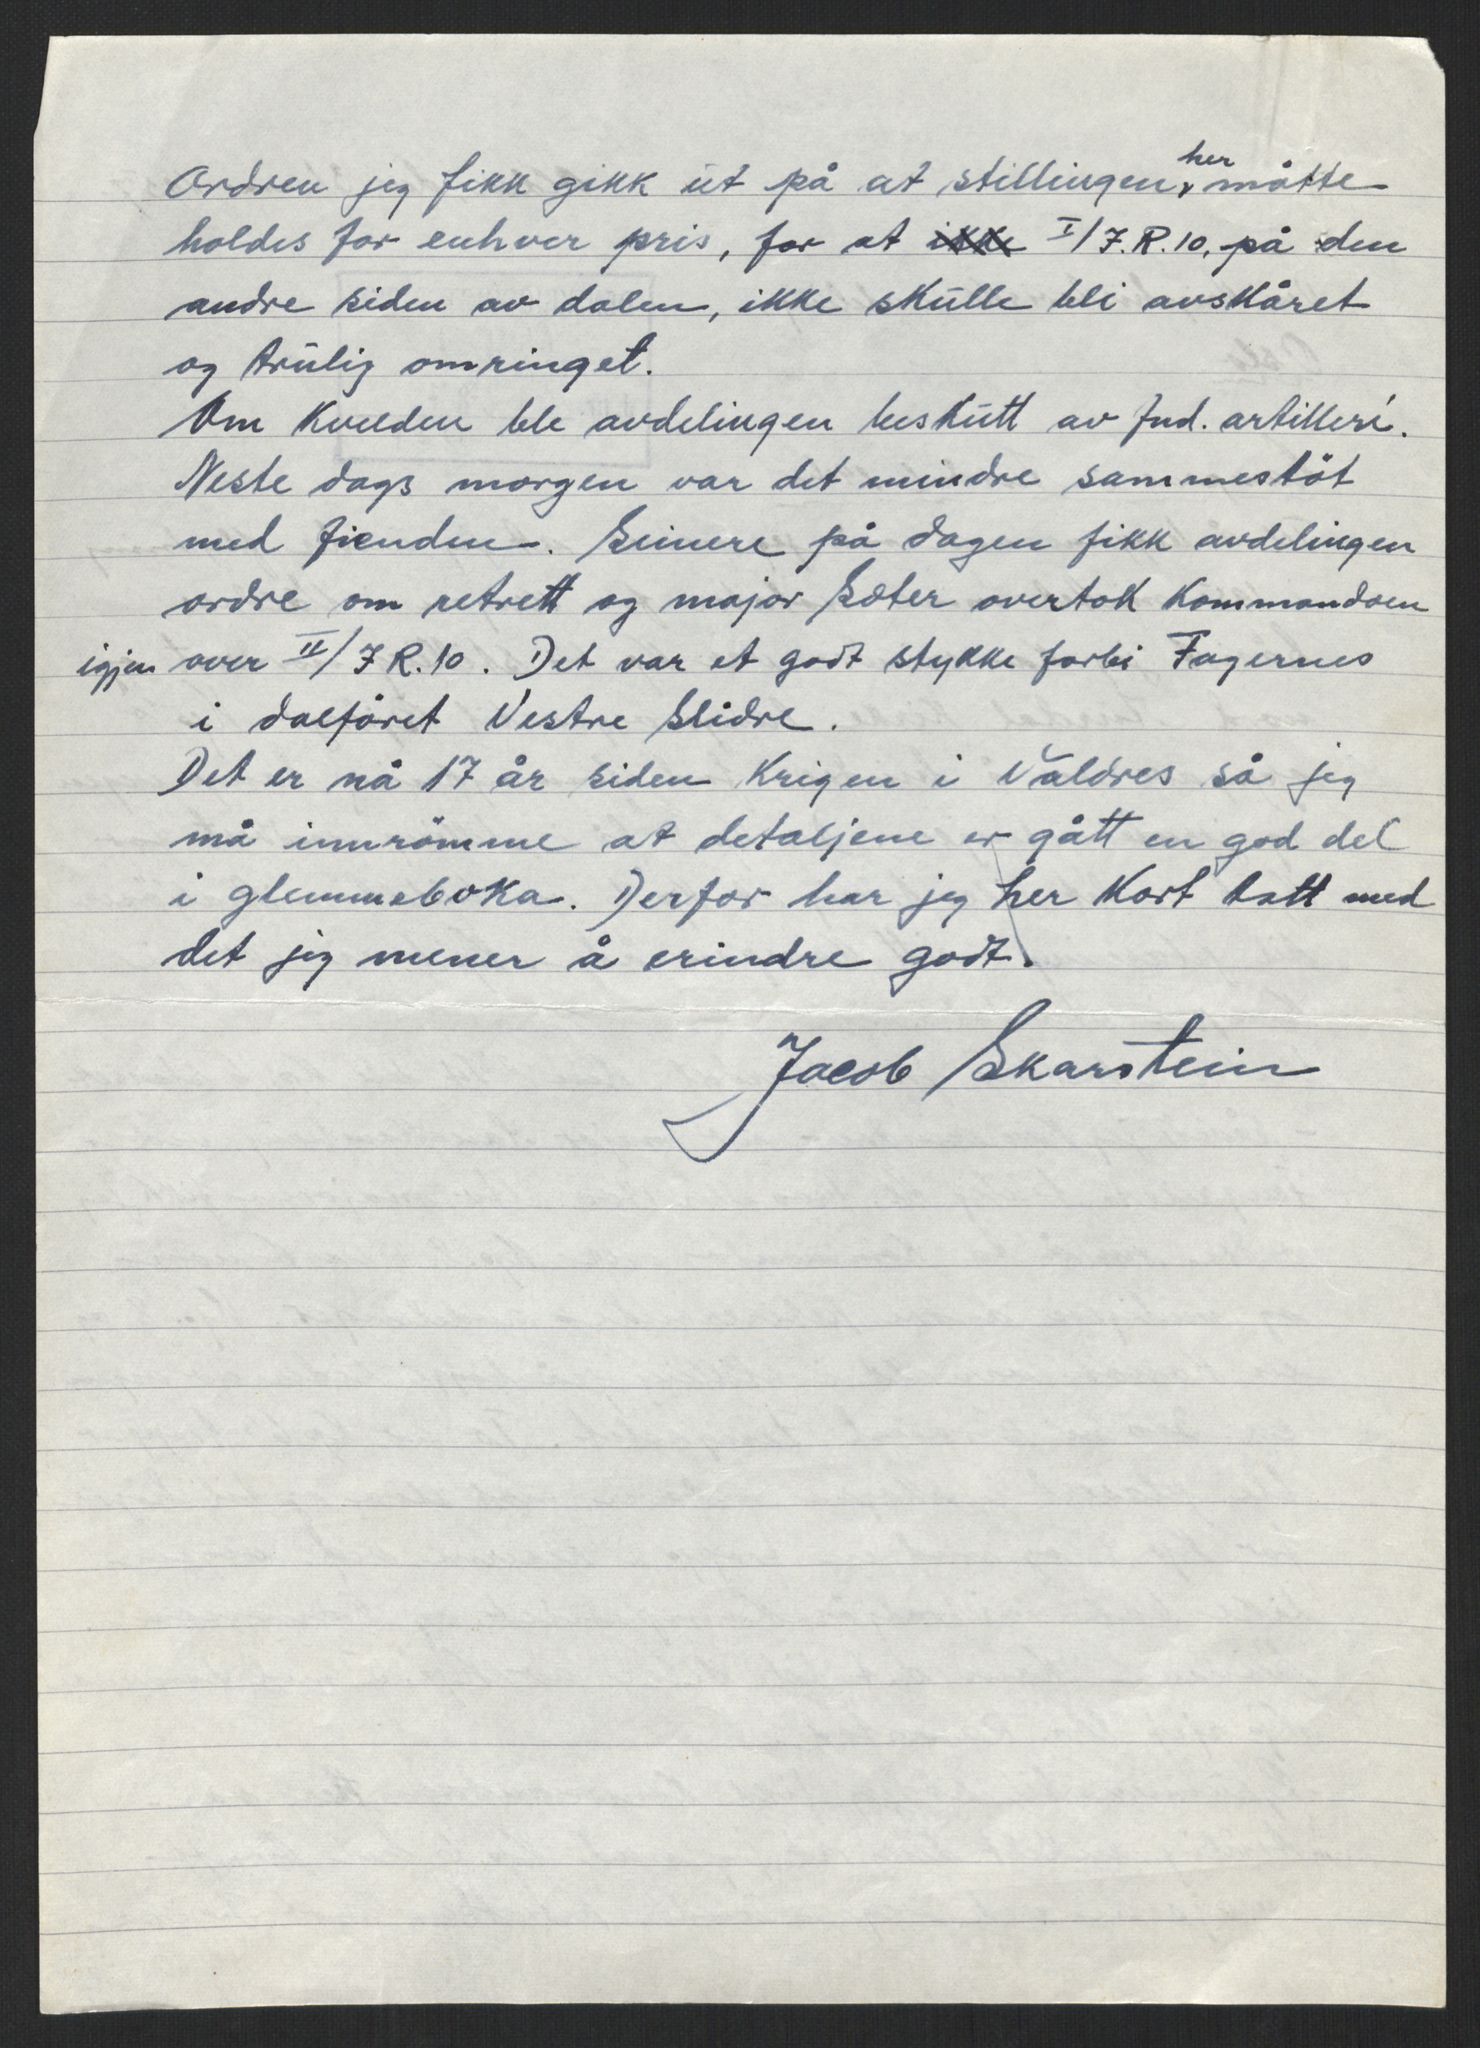 Ordren jeg fikk gikk ut på at stillingen her måtte
holdes for enhver pris, for at ikke I/J.R.10, på den
andre siden av dalen, ikke skulle bli avskåret
og trulig omringet.
Om kvelden ble avdelingen beskutt av fiend. artilleri.
Neste dags morgen var det mindre sammestöt
med fienden. Seinere på dagen fikk avdelingen
ordre om retrett og major Sæter overtok kommandoen
igjen over II/J R.10. Det var et godt stykke forbi Fagernes
i dalföret Vestre Slidre.
Det er nå 17 år siden krigen i Valdres så jeg
må innrömme at detaljene er gått en god del
i glemmeboka. Derfor har jeg her kort tatt med
det jeg mener å erindre godt.
Jacob Skarstein